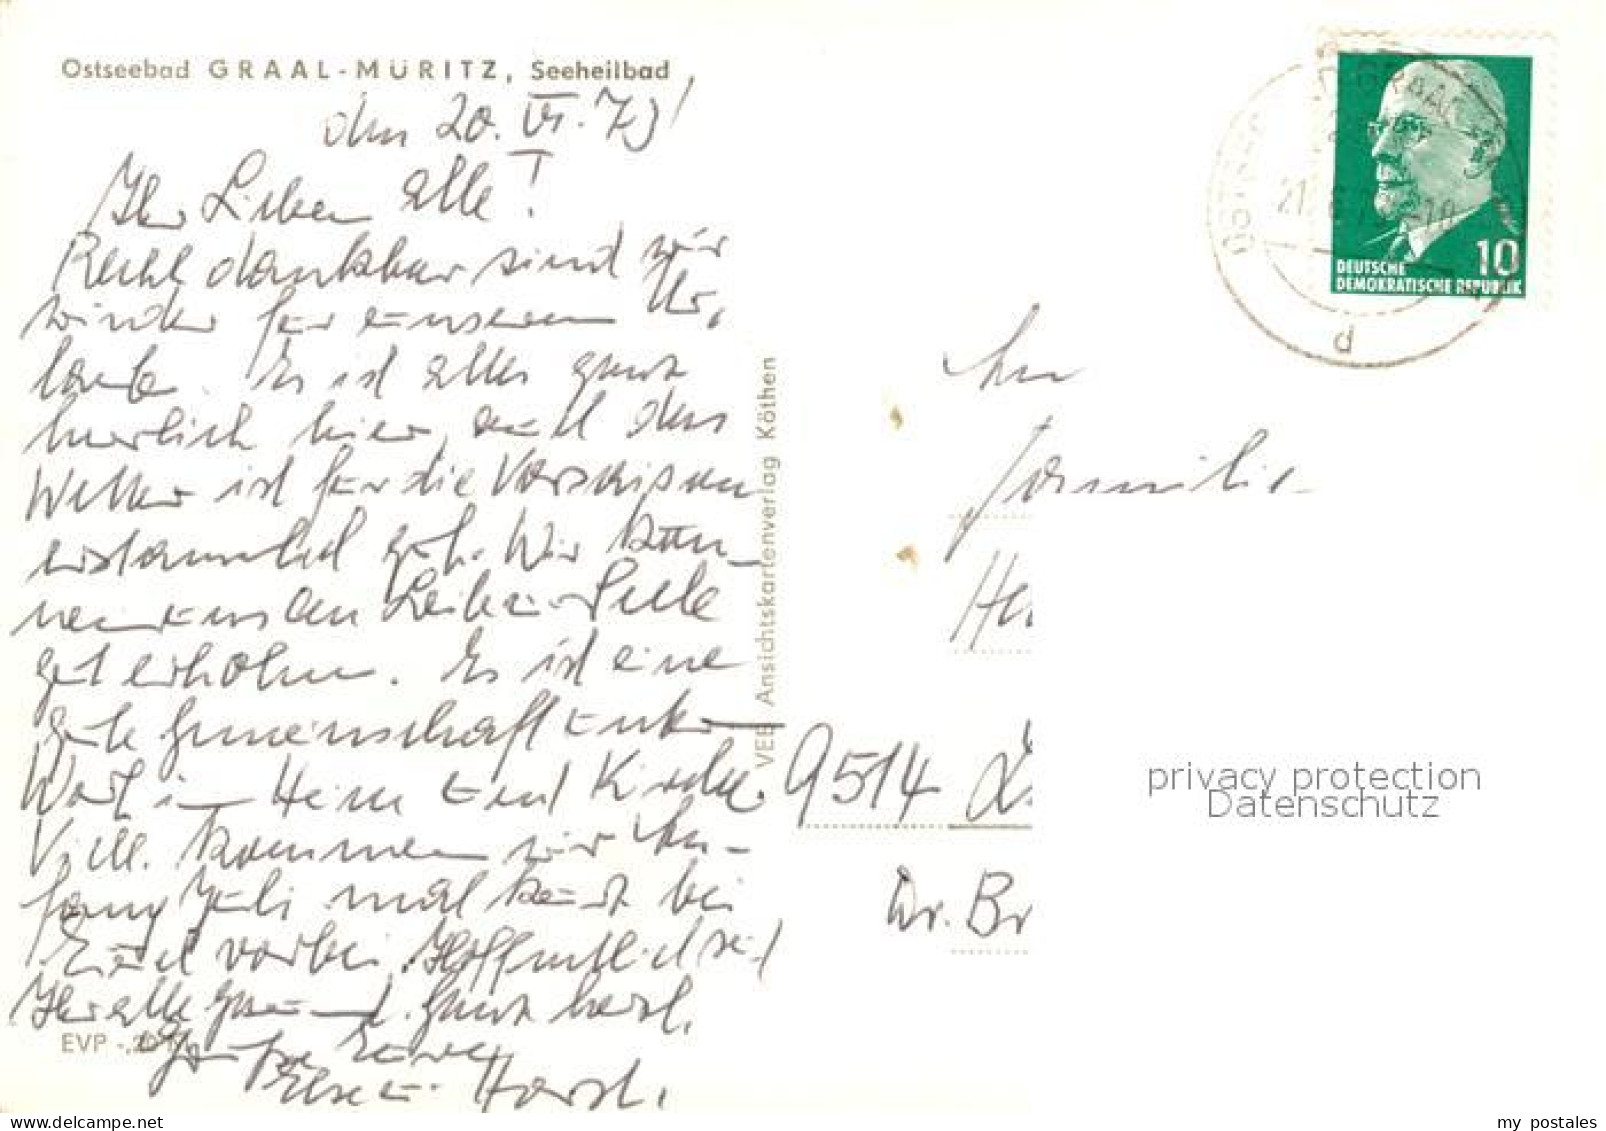 Ostseebad GRAAL-MÜRITZ, Seeheilbad
den 20. VI. 73!
Ihr Lieben alle!
Recht dankbar sind wir
wieder für unseren Ur,
laub. Es ist alles ganz
herrlich hier, auch das
Wetter ist für die Vorsaison
erstaunlich gut. Wir kön-
nen uns an Leib u. Seele
gut erholen. Es ist eine
gute Gemeinschaft unter
Wort in Heim und Kirche.
Viell. kommen wir An-
fang Juli mal kurz bei
Euch vorbei. Hoffentlich seid
Ihr alle gesund. Ganz herzl.
Grüße Eure
Else u. Horst.
EVP -,20 M
VEB Ansichtskartenverlag Köthen
21. 6. 7
d
10
DEUTSCHE
DEMOKRATISCHE REPUBLIK
An
Familie
9514
Dr. Br
privacy protection
Datenschutz
my postales